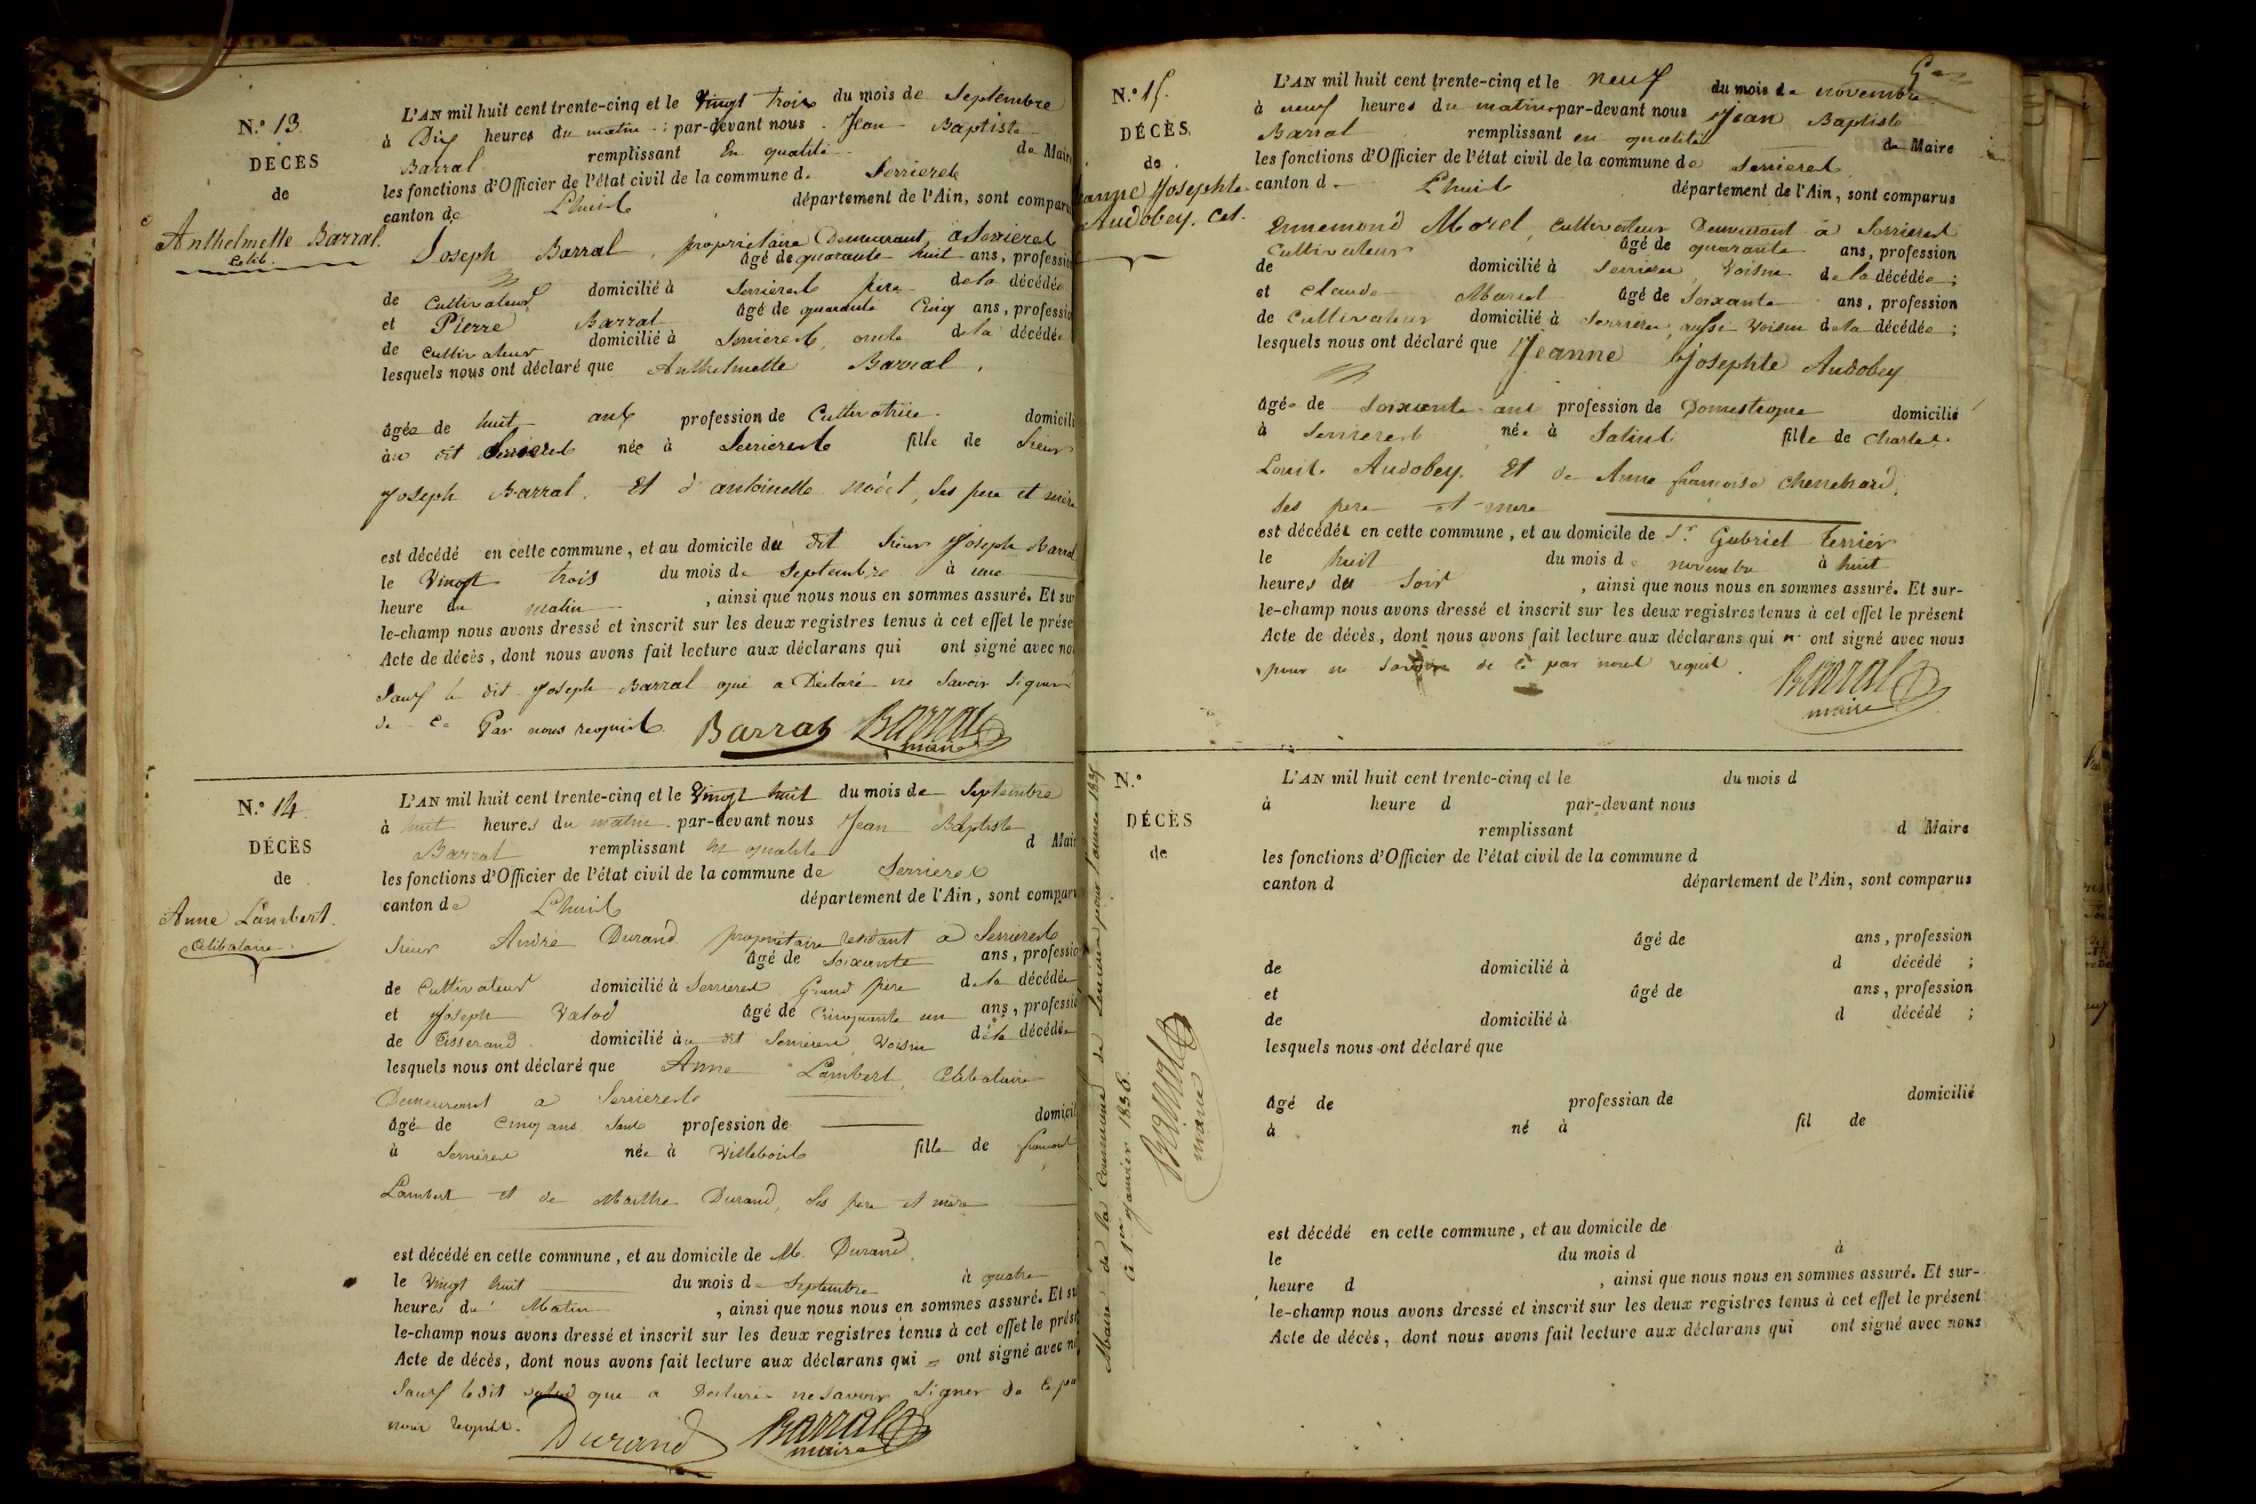 N.º 13.
DÉCÈS
de
Anthelmette Barral.
Celib.
L'AN mil huit cent trente-cinq et le Vingt trois du mois de Septembre
à Dix heures du matin : par-devant nous Jean Baptiste
Barral remplissant En qualité de Maire
les fonctions d'Officier de l'état civil de la commune de Serrieres
canton de Lhuis département de l'Ain, sont comparus
Joseph Barral, propriétaire Demeurant à Serrieres
âgé de quarante huit ans, profession
de Cultivateur domicilié à Serrieres père de la décédée
et Pierre Barral âgé de quarante Cinq ans, profession
de Cultivateur domicilié à Serrieres, oncle de la décédée
lesquels nous ont déclaré que Anthelmette Barral,
âgée de huit ans profession de Cultivatrice domicili
àu dit Serrieres née à Serrieres fille de Sieur
Joseph Barral. Et d'antoinette , Ses pere et mère
est décédé en cette commune, et au domicile du dit Sieur Joseph Barral
le Vingt trois du mois de Septembre à une
heure du matin , ainsi que nous nous en sommes assuré. Et sur
le-champ nous avons dressé et inscrit sur les deux registres tenus à cet effet le prése
Acte de décès, dont nous avons fait lecture aux déclarans qui ont signé avec nou
Sauf le dit Joseph Barral qui a Déclaré ne Savoir Signer
de Ce Par nous requis. Barral Barral
maire
N.º 14.
DÉCÈS
de
Anne Lambert.
Célibataire
L'AN mil huit cent trente-cinq et le Vingt huit du mois de Septembre
à huit heures du matin par-devant nous Jean Baptiste
Barral remplissant en qualité d Mair
les fonctions d'Officier de l'état civil de la commune de Serrieres
canton de Lhuis département de l'Ain, sont comparu
Sieur André Durand propriétaire residant à Serrieres
âgé de Soixante ans, professio
de Cultivateur domicilié à Serrieres Grand père de la décédée
et Joseph Valod âgé de Cinquante un ans, professio
de Tisserand domicilié àu dit Serrieres Voisin de la décédée
lesquels nous ont déclaré que Anne Lambert, Célibataire
Demeurant a Serrieres
âgée de Cinq ans Sans profession de domicil
à Serrieres née à Villebois fille de francois
Lambert et de Marthe Durand, Ses pere et mère
est décédé en cette commune, et au domicile de M. Durand
le Vingt huit du mois de Septembre à quatre
heures du Matin , ainsi que nous nous en sommes assuré. Et su
le-champ nous avons dressé et inscrit sur les deux registres tenus à cet effet le prése
Acte de décès, dont nous avons fait lecture aux déclarans qui ont signé avec no
Sauf ledit valod qui a Déclaré ne savoir Signer de Ce par
nous requis. Durand Barral
maire
N.º 15.
DÉCÈS
de
Jeanne Josephte
Audobey. Cel.
L'AN mil huit cent trente-cinq et le neuf du mois de novembre
à neuf heures du matin par-devant nous Jean Baptiste
Barral remplissant en qualité de Maire
les fonctions d'Officier de l'état civil de la commune de Serrieres
canton d Lhuis département de l'Ain, sont comparus
Ennemond Morel, cultivateur Demeurant à Serrieres
Cultivateur âgé de quarante ans, profession
de domicilié à Serrieres, Voisin de la décédée ;
et Claude Marcel âgé de Soixante ans, profession
de Cultivateur domicilié à Serrieres, aussi Voisin de la décédée ;
lesquels nous ont déclaré que Jeanne Josephte Audobey
âgée de Soixante ans profession de Domestique domicilié
à Serrieres née à Salins fille de Charles
Louis Audobey. Et de Anne françoise Chenehard,
Ses pere et mere
est décédée en cette commune, et au domicile de Sr. Gabriel Terrier
le huit du mois de novembre à huit
heures du Soir , ainsi que nous nous en sommes assuré. Et sur-
le-champ nous avons dressé et inscrit sur les deux registres tenus à cet effet le présent
Acte de décès, dont nous avons fait lecture aux déclarans qui n' ont signé avec nous
pour ne Savoir de ce par nous requis. Barral
maire
N.º
DÉCÈS
de
L'AN mil huit cent trente-cinq et le du mois d
à heure d par-devant nous
remplissant d Maire
les fonctions d'Officier de l'état civil de la commune d
canton d département de l'Ain, sont comparus
âgé de ans, profession
de domicilié à d décédé ;
et âgé de ans, profession
de domicilié à d décédé ;
lesquels nous ont déclaré que
âgé de profession de domicilié
à né à fil de
est décédé en cette commune, et au domicile de
le du mois d à
heure d , ainsi que nous nous en sommes assuré. Et sur-
le-champ nous avons dressé et inscrit sur les deux registres tenus à cet effet le présent
Acte de décès, dont nous avons fait lecture aux déclarans qui ont signé avec nous
Maire de la Commune de Serrieres pour l'année 1835
Ce 1er Janvier 1836.
Barral
maire